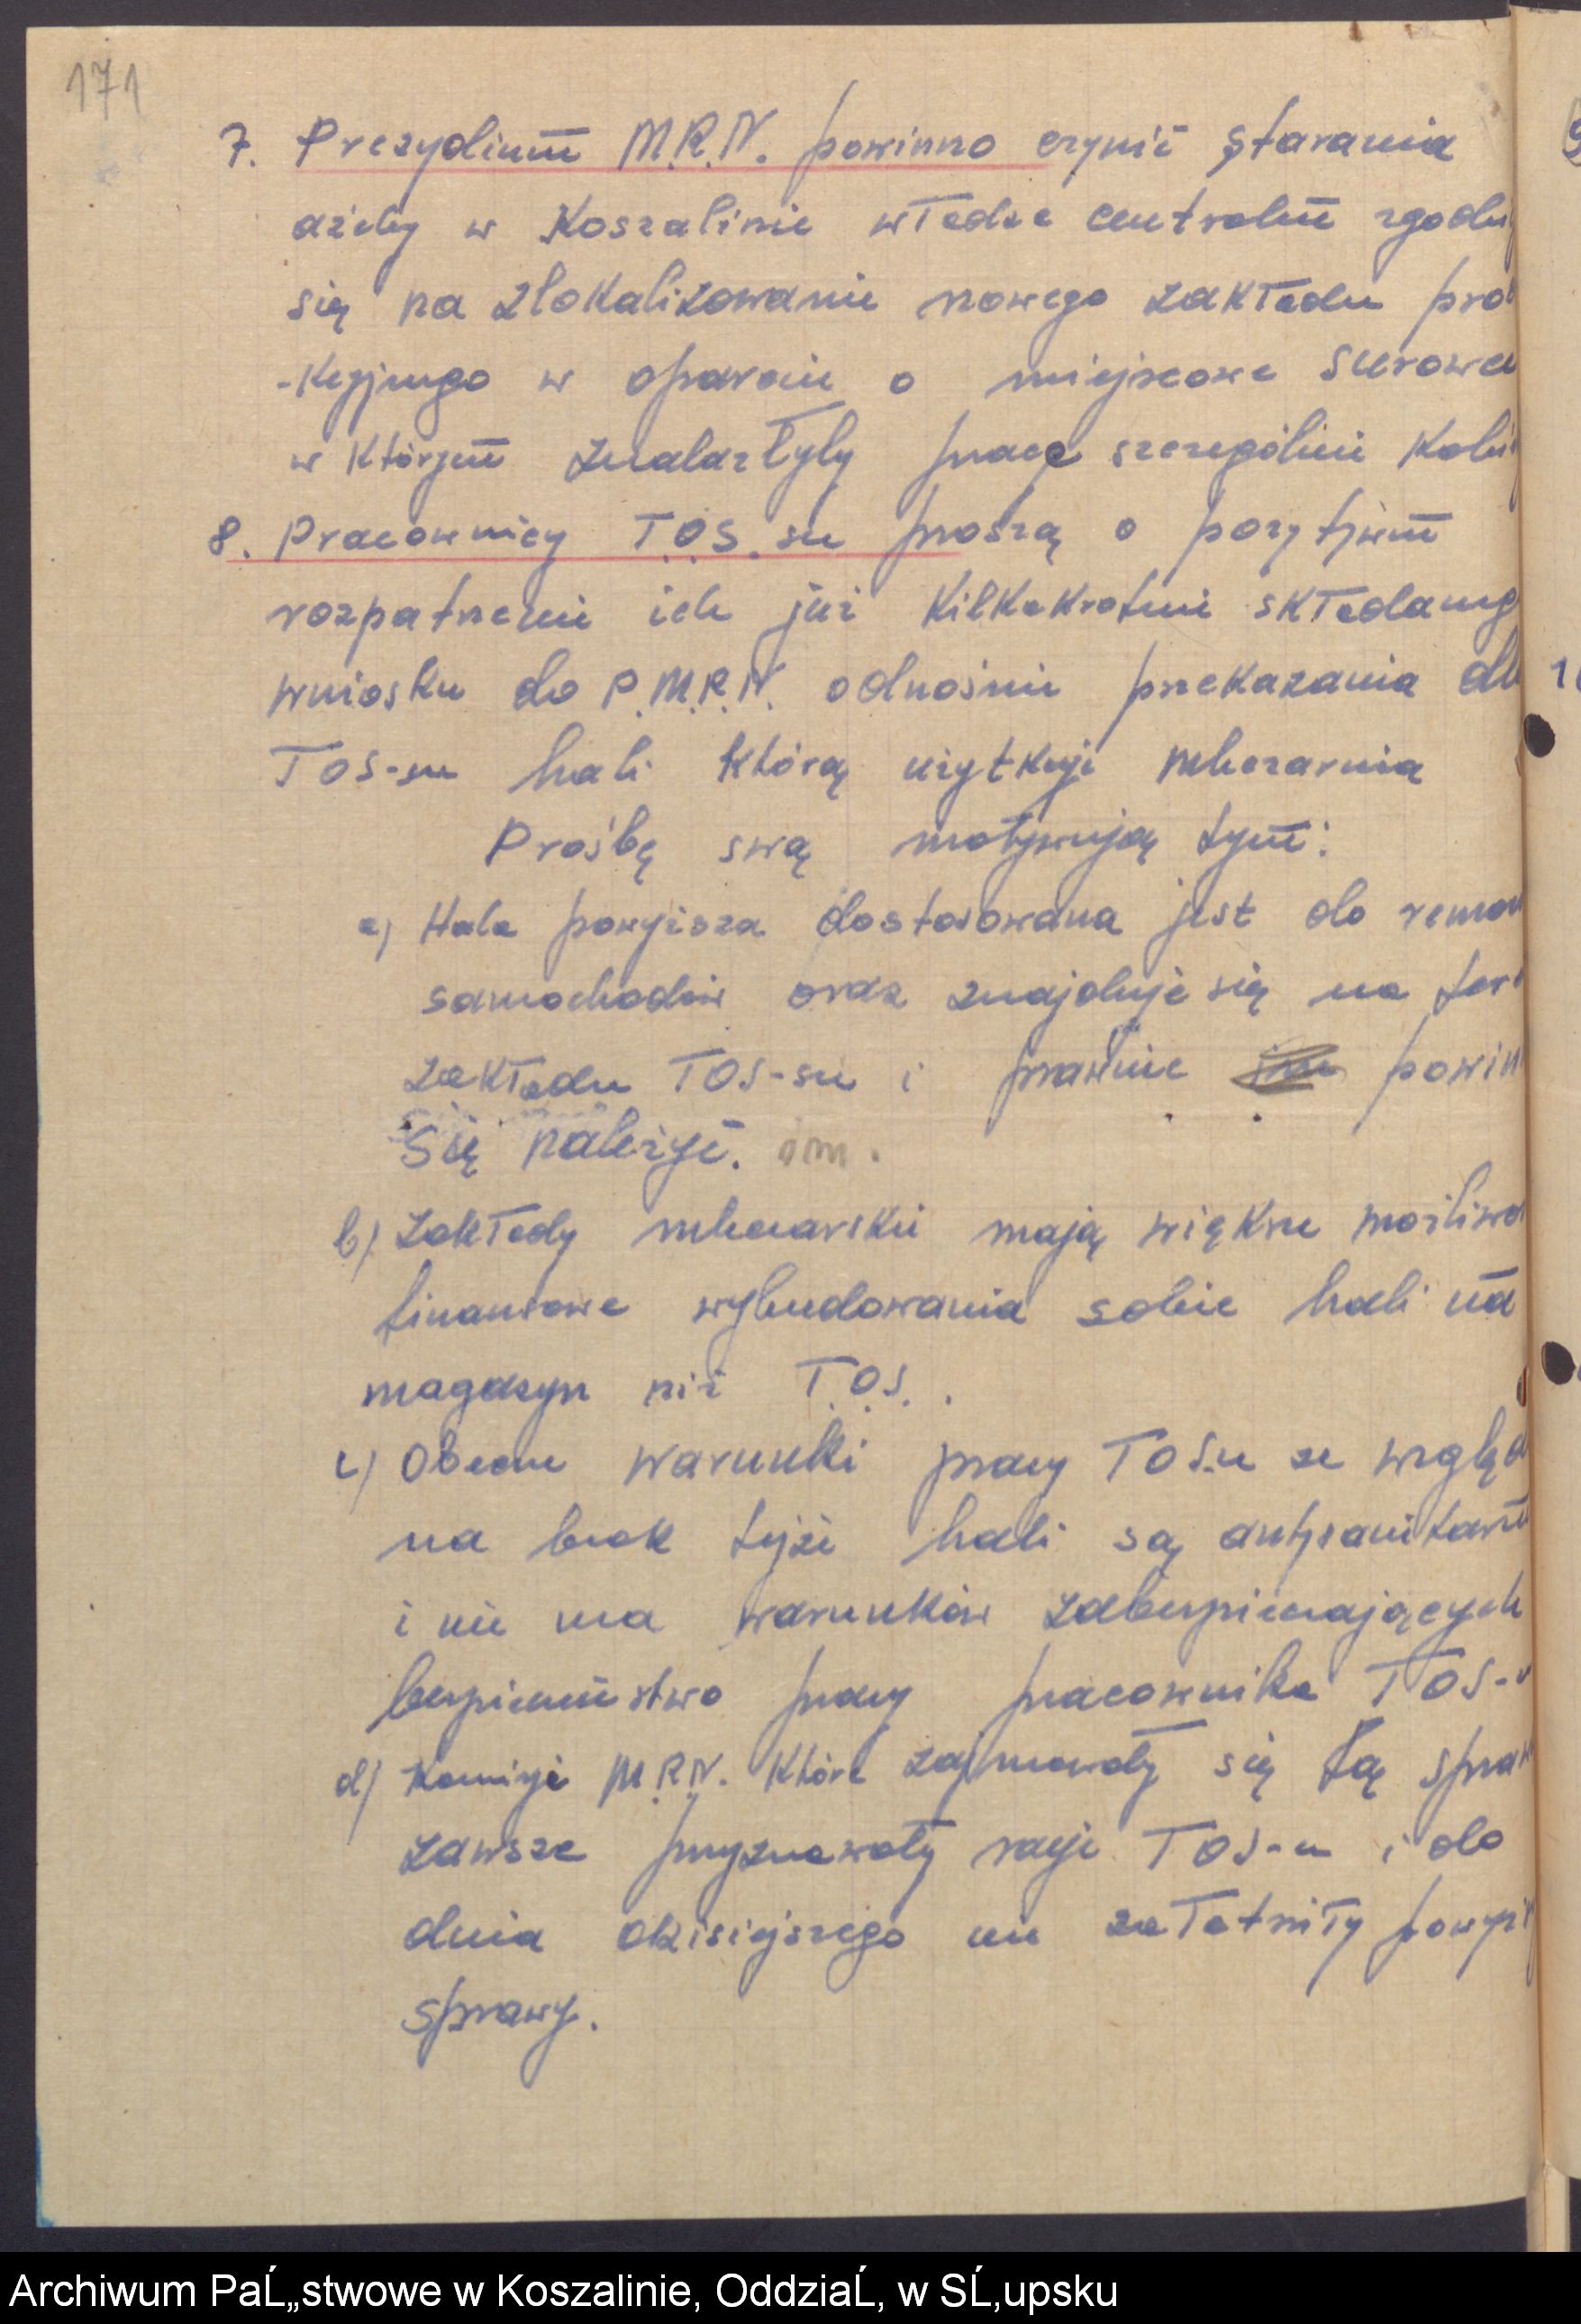 171
7. Prezydium M.R.N. powinno czynić starania
ażeby w Koszalinie władze centralne zgodzi
się na zlokalizowanie nowego zakładu prod
-kcyjnego w oparciu o miejscowe surowce
w którym znalazłyby pracę szczególnie kobie
8. Pracownicy T.O.S.su proszą o pozytywne
rozpatrzenie ich już kilkakrotnie składaneg
wniosku do P.M.R.N. odnośnie przekazania dla
TOS-su hali którą użytkuje mleczarnia
Prośbę swą motywują tym:
a) Hala powyższa dostosowana jest do remon
samochodów oraz znajduje się na ter
zakładu TOS-su i prawnie powin
się należyć. im.
b) Zakłady mleczarskie mają większe możliwo
finansowe wybudowania sobie hali na
magazyn niż T.O.S..
c) Obecne warunki pracy TOS.u ze względ
na brak tejże hali są antysanitarne
i nie ma warunków zabezpieczających
bezpieczeństwo pracy pracownika TOS-u
d) Komisje M.R.N. które zajmowały się tą spraw
zawsze przyznawały rację TOS-u i do
dnia dzisiejszego nie załatwiły powyż
sprawy.
1
Archiwum PaĹ„stwowe w Koszalinie, OddziaĹ‚ w SĹ‚upsku